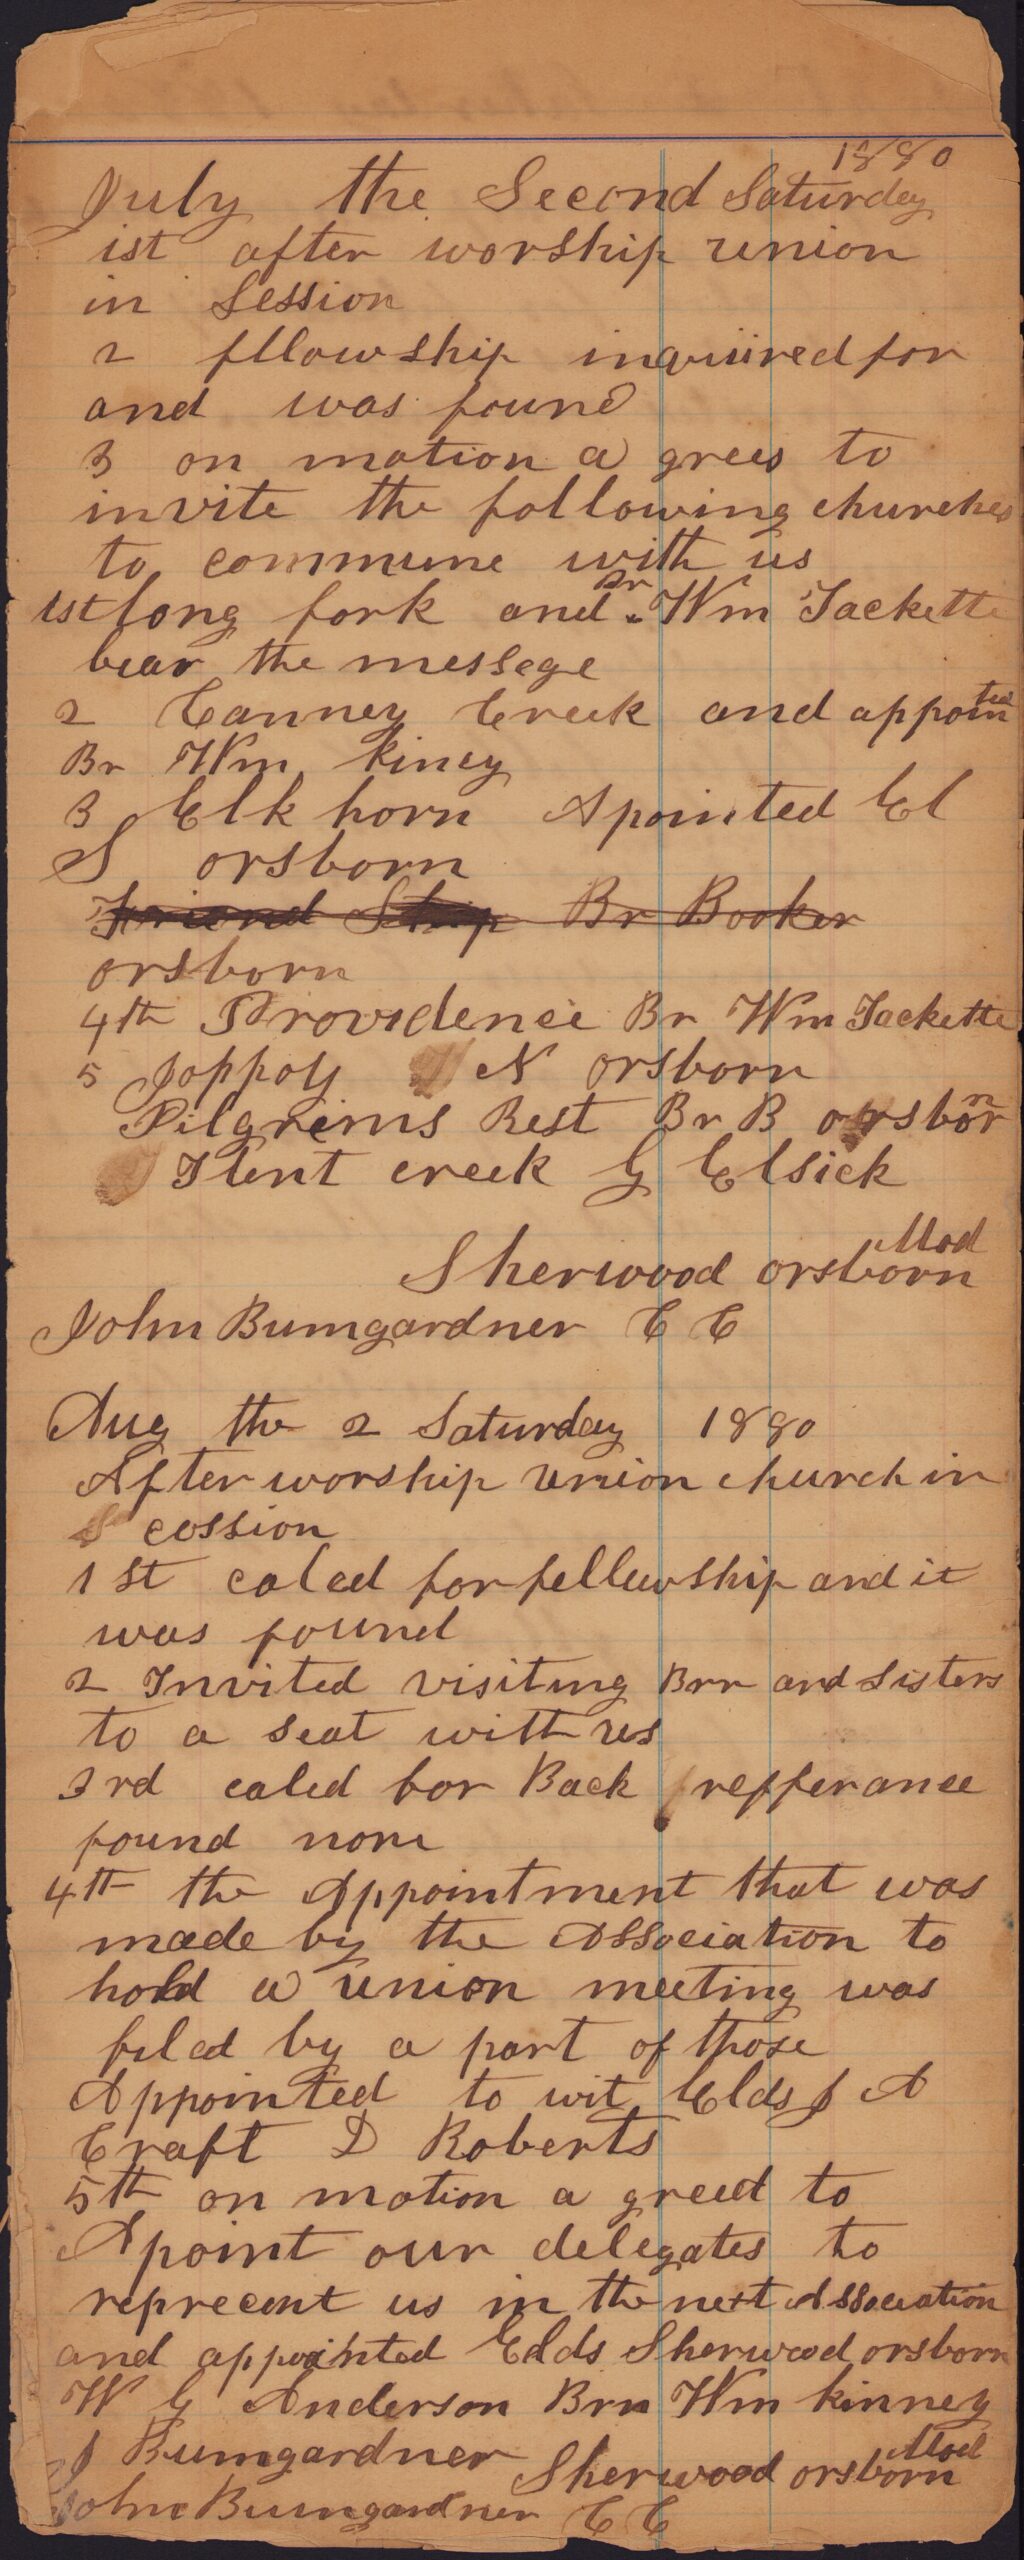 1880
July the Second Saturday
ist after worship union
in Session
2 fllowship inquiired for
and was found
3 on motion a grees to
invite the following churches
to commune with us
1st long fork and Br Wm Tackette
bear the messege
2 Canney Creek and appointed
Br Wm Kiney
3 Elk horn Apointed El
S orsborn
Friend Ship Br Booker
orsborn
4th Providence Br Wm Tackette
5 Joppoy N orsborn
Pilgrems Rest Br B orsborn
Flent creek G Elsick
Mod
Sherwood orsborn
John Bumgardner C C
Aug the 2 Saturday 1880
After worship union church in
S cession
1st caled for fellowship and it
was found
2 Invited visiting Brr and Sisters
to a seat with us
3rd caled for Back refferance
found none
4th the Appointment that was
made by the Association to
hold a union meeting was
filed by a part of those
Appointed to wit Elds J A
Craft D Roberts
5th on motion a greed to
Apoint our delegates to
reprecent us in the next Association
and appointed Elds Sherwood orsborn
W G Anderson Brn Wm Kinney
J Bumgardner
Mod
Sherwood orsborn
John Bumgardner C C